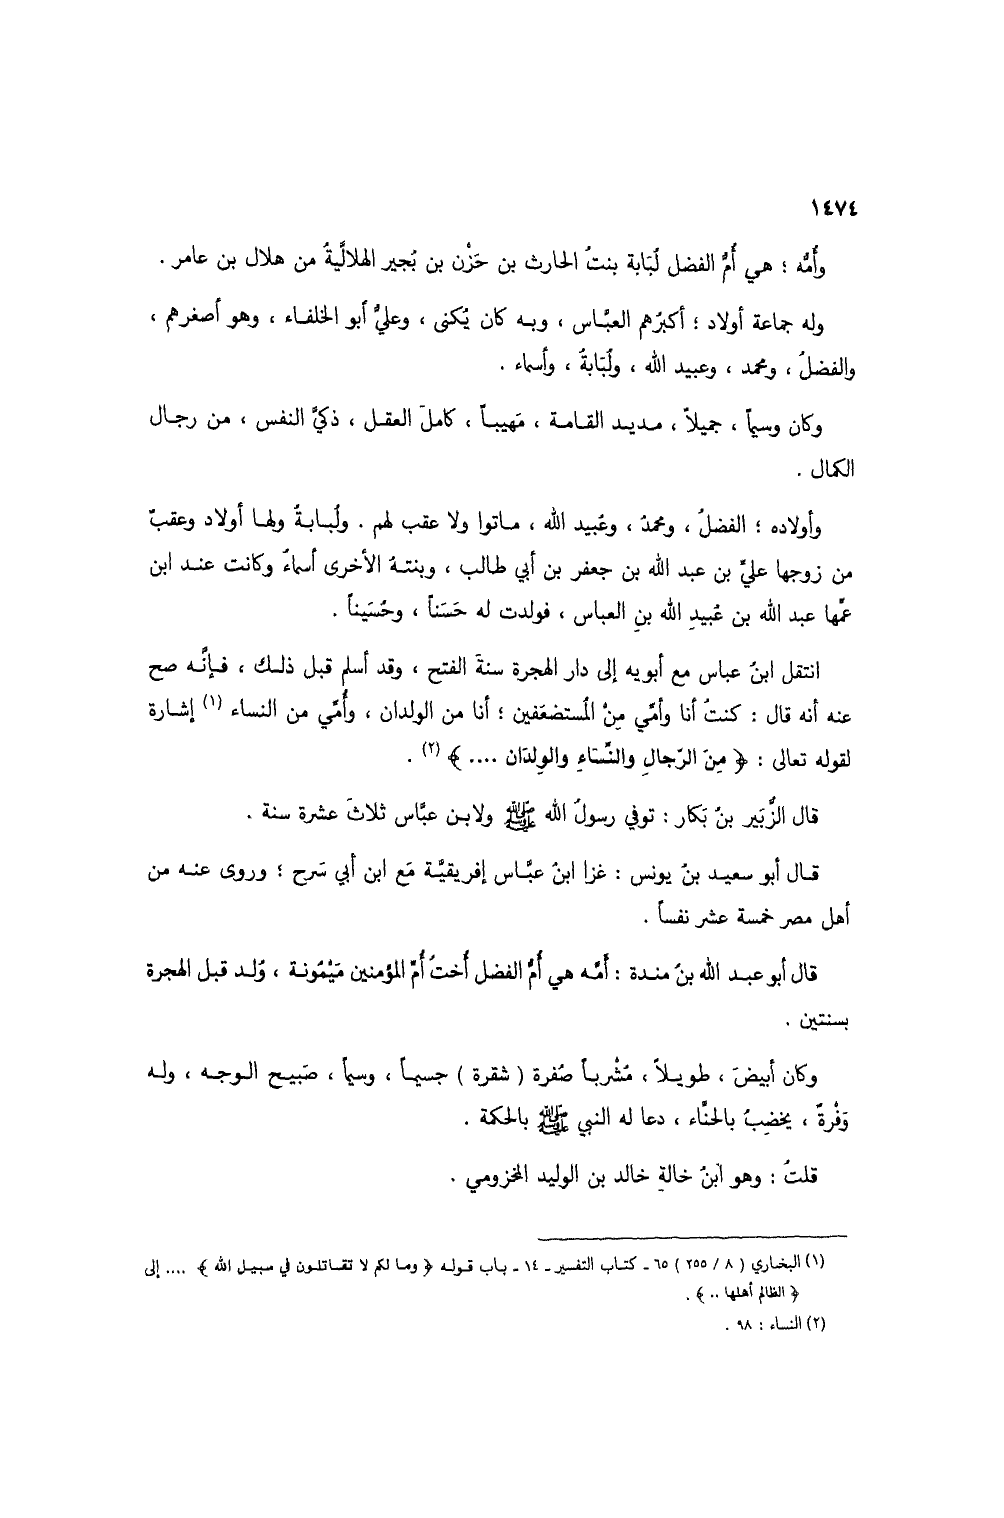 ١٤٧٤
وأُمُّه ؛ هي أُمُّ الفضل لُبَابة بنتُ الحارث بن حَزْن بن بُجير الهلاليَّةُ من هلال بن عامر .
وله جماعة أولاد ؛ أكبرُهم العبَّاس ، وبه كان يُكنى ، وعليٌّ أبو الخلفاء ، وهو أصغرهم ،
والفضلُ ، ومحمد ، وعبيد الله ، ولُبَابةُ ، وأسماء .
وكان وسيماً ، جميلاً ، مديد القامة ، مَهيباً ، كاملَ العقل ، ذكيَّ النفس ، من رجال
الكمال .
وأولاده ؛ الفضلُ ، ومحمدُ ، وعُبيد الله ، ماتوا ولا عقب لهم . ولُبابةُ ولها أولاد وعقبٌ
من زوجها عليِّ بن عبد الله بن جعفر بن أبي طالب ، وبنتهُ الأخرى أسماءُ وكانت عند ابن
عمِّها عبد الله بن عُبيدِ الله بنِ العباس ، فولدت له حَسَناً ، وحُسَيناً .
انتقل ابنُ عباس مع أبويه إلى دار الهجرة سنةَ الفتح ، وقد أسلم قبل ذلك ، فإنَّه صح
عنه أنه قال : كنتُ أنا وأمِّي مِنْ المُستضعَفين ؛ أنا من الولدان ، وأُمِّي من النساء (١) إشارة
لقوله تعالى : ﴿ مِنَ الرّجالِ والنِّسَاءِ والوِلدَان .... ﴾ (٢) .
قال الزُّبَير بنُ بَكار : توفي رسولُ الله ﷺ ولابن عبَّاس ثلاثَ عشرة سنة .
قال أبو سعيد بنُ يونس : غزا ابنُ عبَّاس إفريقيَّة مَع ابن أبي سَرح ؛ وروى عنه من
أهل مصر خمسة عشر نفساً .
قال أبو عبد الله بنُ مندة : أُمَّه هي أُمُّ الفضل أُختُ أُمِّ المؤمنين مَيْمُونة ، وُلد قبل الهجرة
بسنتين .
وكان أبيضَ ، طويلاً ، مُشْرباً صُفرة ( شقرة ) جسيماً ، وسيماً ، صَبيح الوجه ، وله
وَفْرةٌ ، يخضِبُ بالحنَّاء ، دعا له النبي ﷺ بالحكمة .
قلتُ : وهو ابنُ خالةِ خالد بن الوليد المخزومي .
(١) البخاري ( ٨ / ٢٥٥ ) ٦٥ ـ كتاب التفسير ـ ١٤ ـ باب قوله ﴿ وما لكم لا تقاتلون في سبيل الله ﴾ .... إلى
﴿ الظالم أهلها .. ﴾ .
(٢) النساء : ٩٨ .